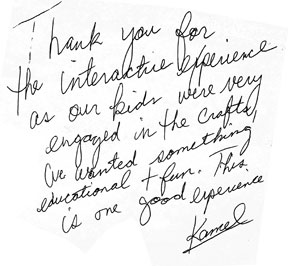 Thank you for
the interactive experience
as our kids were very
engaged in the crafts,
we wanted something
educational + fun. This
is one good experience
Kamel